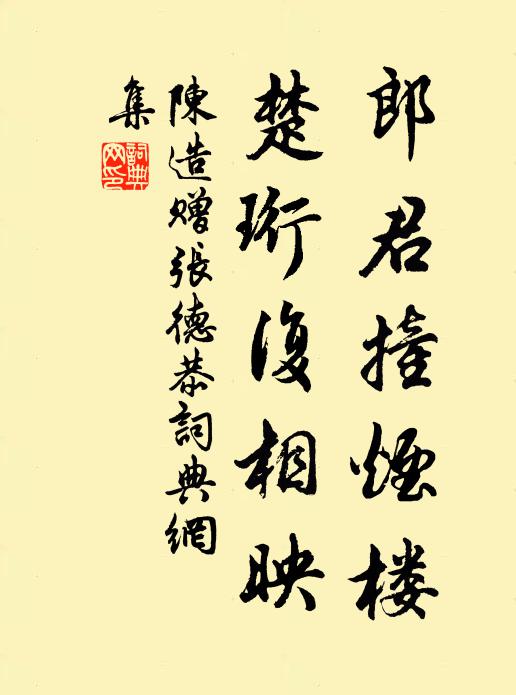 郎君撞煙楼
楚珩復相映
陳造贈張德恭詞典網
集
詞典網印